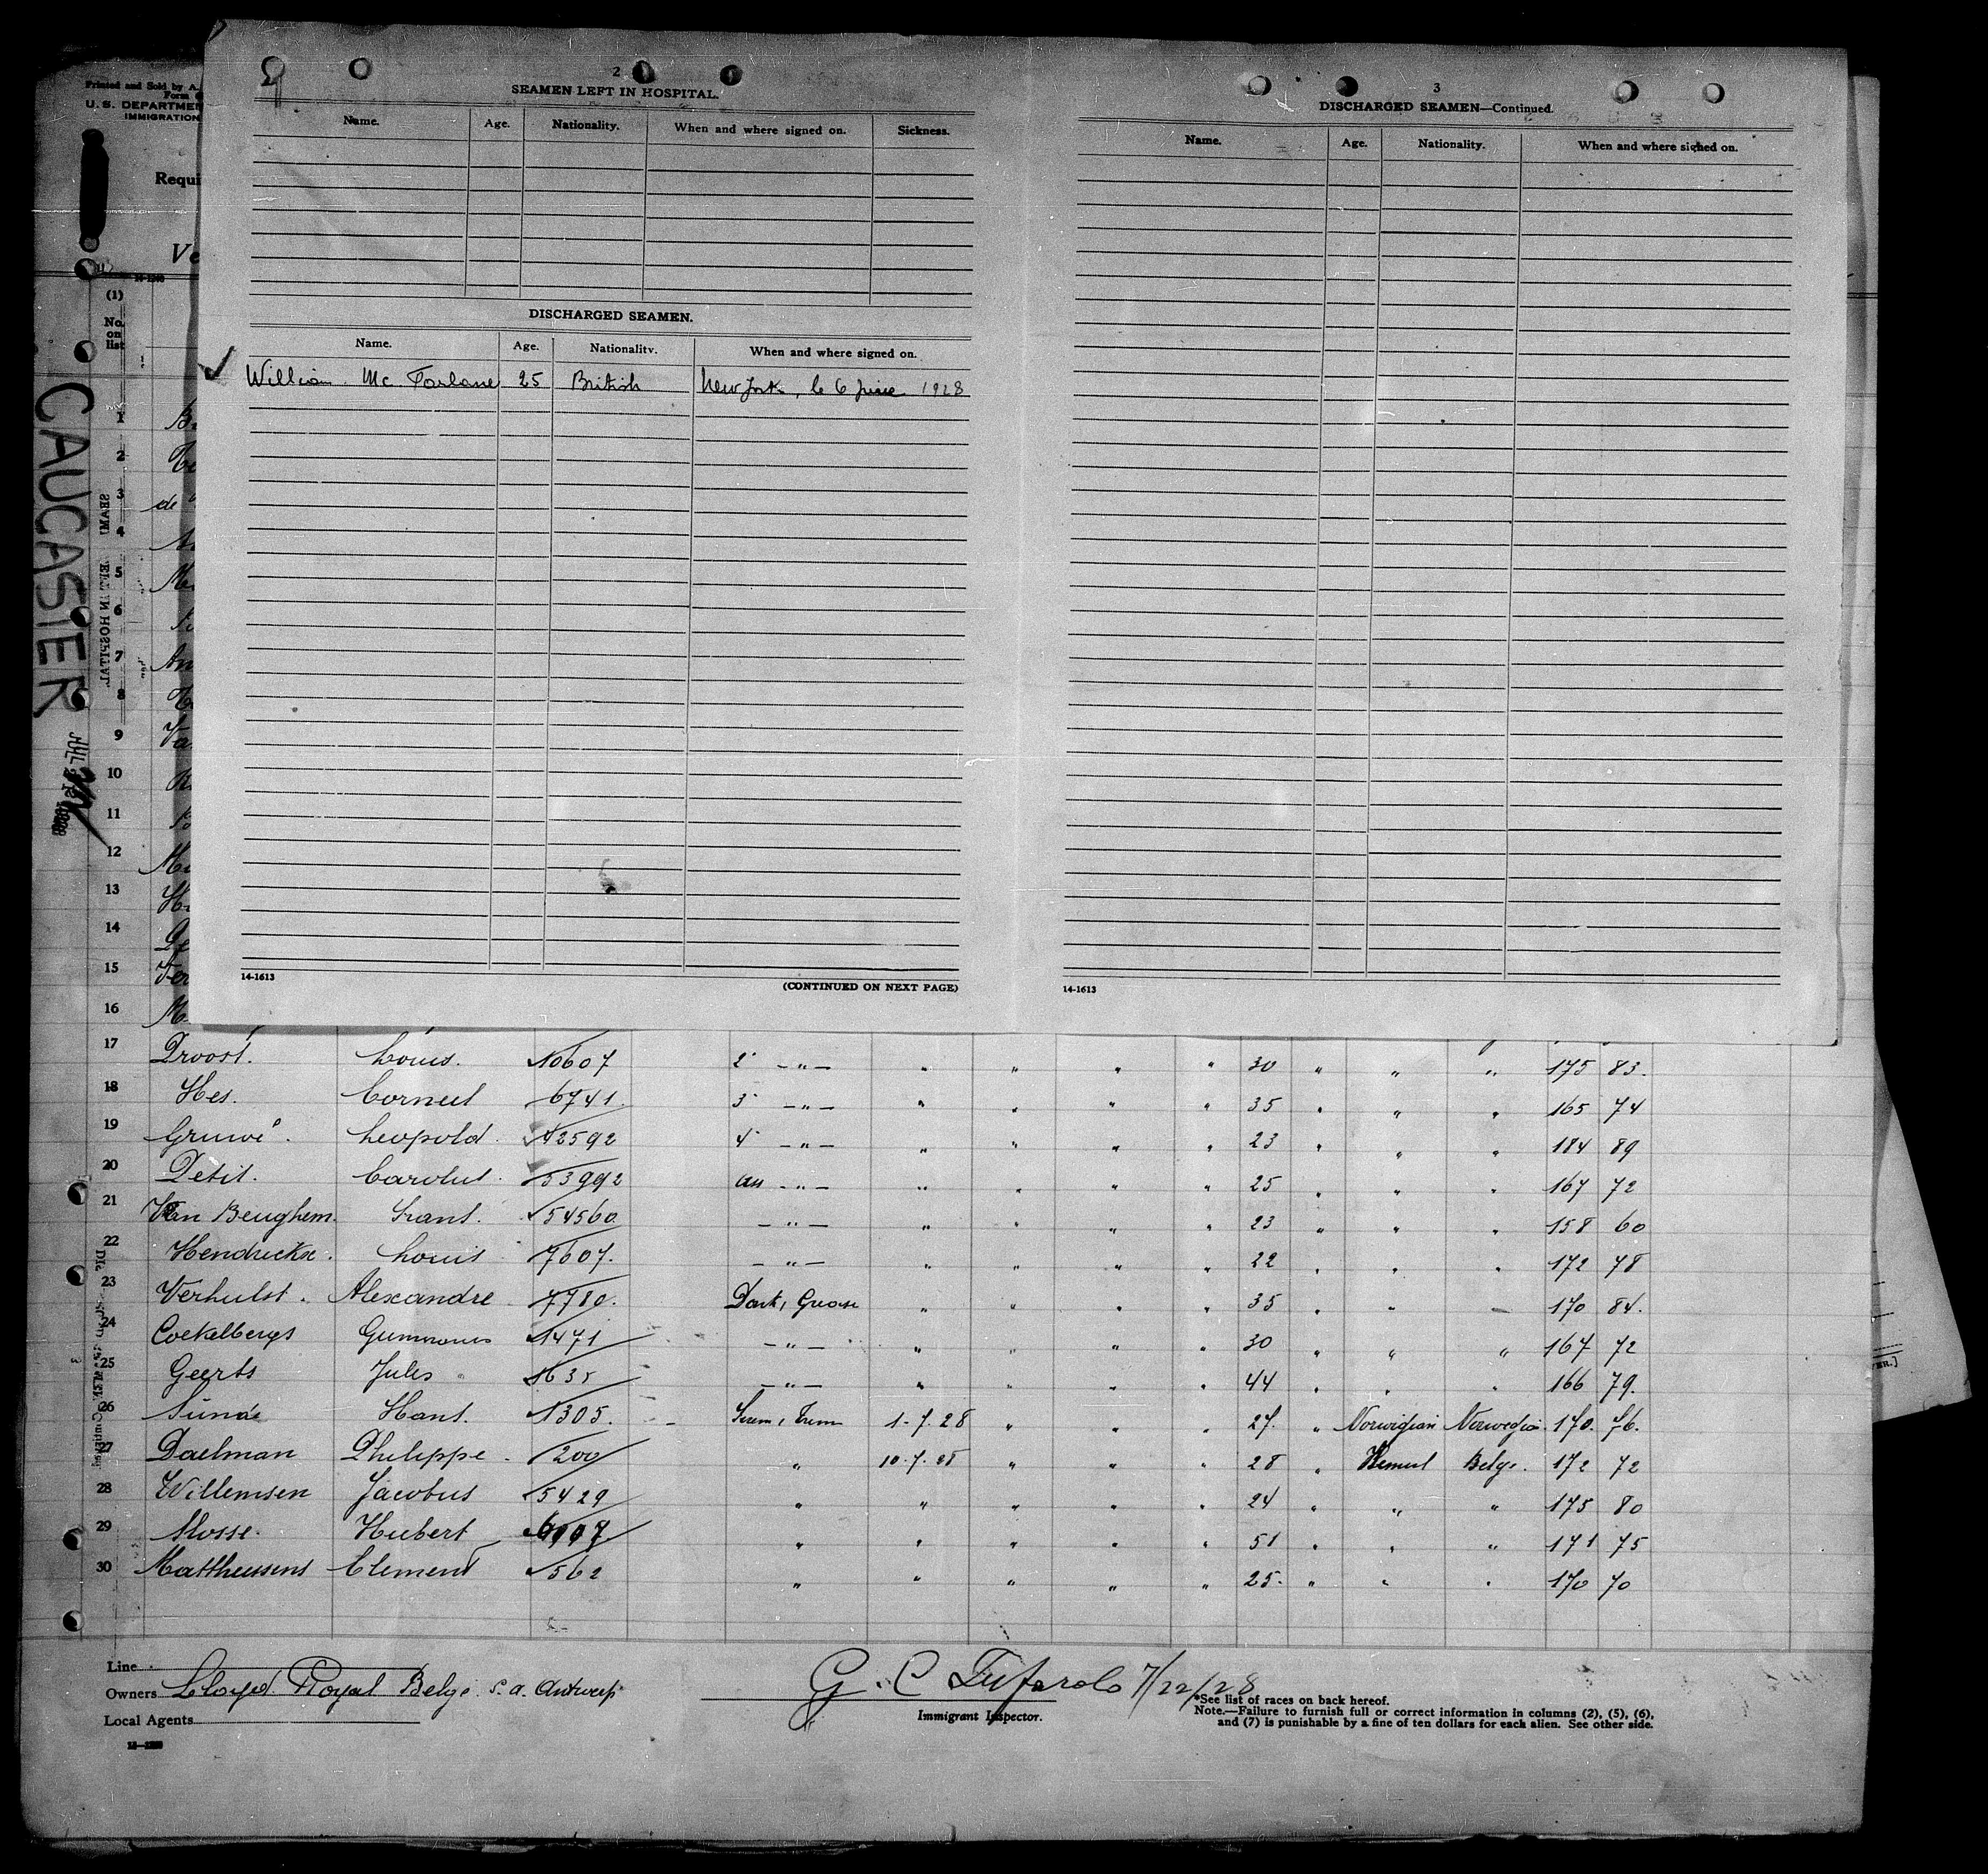 Printed and Sold by A.
Form
U. S. DEPARTMEN
IMMIGRATION
Requi
Ve
(1)
No.
on
list
CAUCASIER
2
SEAMEN LEFT IN HOSPITAL.
Name. Age. Nationality. When and where signed on. Sickness.
DISCHARGED SEAMEN.
Name. Age. Nationality. When and where signed on.
William Mc Farlane 25 British New York, le 6 juin 1928
14-1613
(CONTINUED ON NEXT PAGE)
3
DISCHARGED SEAMEN—Continued.
Name. Age. Nationality. When and where signed on.
14-1613
1
2
3 de
4
5
6
7
8
9
10
11
12
13
14
15
16
17 Droost. Louis. 10607 2 -"- " " " " 30 " " " 175 83.
18 Hes. Corneel 6741. 3 -"- " " " " 35 " " " 165 74
19 Gruwé. Leopold. 42592 4 -"- " " " " 23 " " " 184 89
20 Petit. Carolus. 53992 -"- " " " " 25 " " " 167 72
21 Van Beughem. Frans. 54560 -"- " " " " 23 " " " 158 60
22 Hendrickx. Louis 7607. -"- " " " " 22 " " " 172 78
23 Verhulst. Alexandre 7780. " " " " 35 " " 170 84.
24 Coekelbergs Gummarus 1471 -"- " " " " 30 " " " 167 72
25 Geerts Jules 1635 -"- " " " " 44 " " " 166 79.
26 Sunde Hans. 1305. 1-7.28 " " " 27. " Norwigian Norwegia. 170. 76.
27 Daelman Philippe. 200 " 10.7.28 " " " 28 " Flemish Belge. 172 72
28 Willemsen Jacobus 5429 " " " " " 24 " " " 175 80
29 Mosse. Hubert " " " " " 51 " " " 171 75
30 Mattheussens Clement 562 " " " " " 25. " " " 170 70
Line
Owners Lloyd Royal Belge S. A. Antwerp
Local Agents
G. C Tufarolo 7/22/28
Immigrant Inspector.
*See list of races on back hereof.
Note.—Failure to furnish full or correct information in columns (2), (5), (6),
and (7) is punishable by a fine of ten dollars for each alien. See other side.